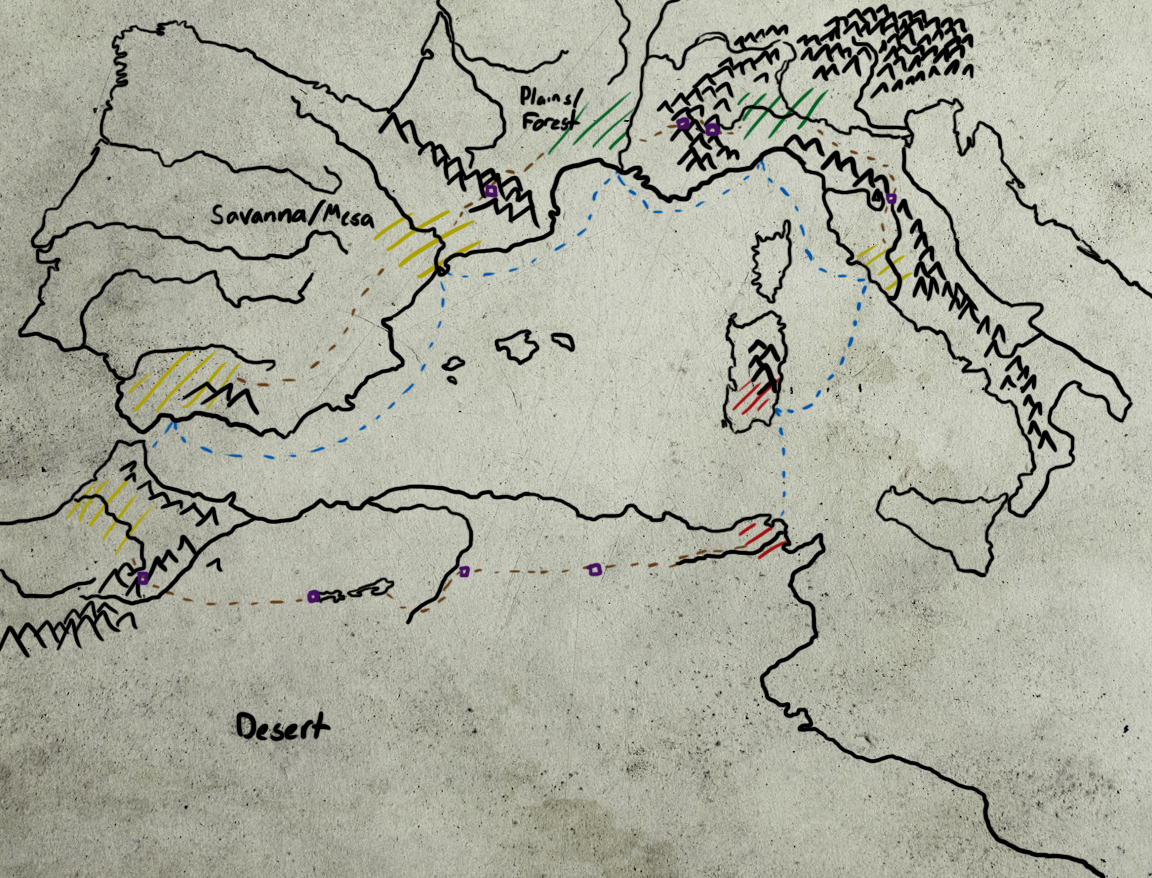 Plains/
Forest
Savanna/Mesa
Desert